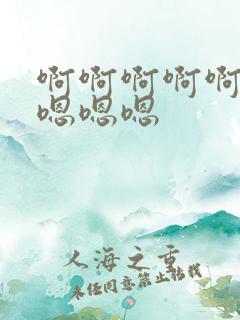 啊啊啊啊啊
嗯嗯嗯
人海之重
未经同意禁止转载